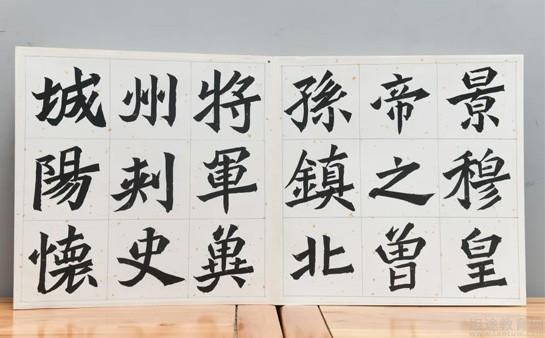 景穆皇
帝之曾
孫鎮北
将軍冀
州刾史
城陽懷